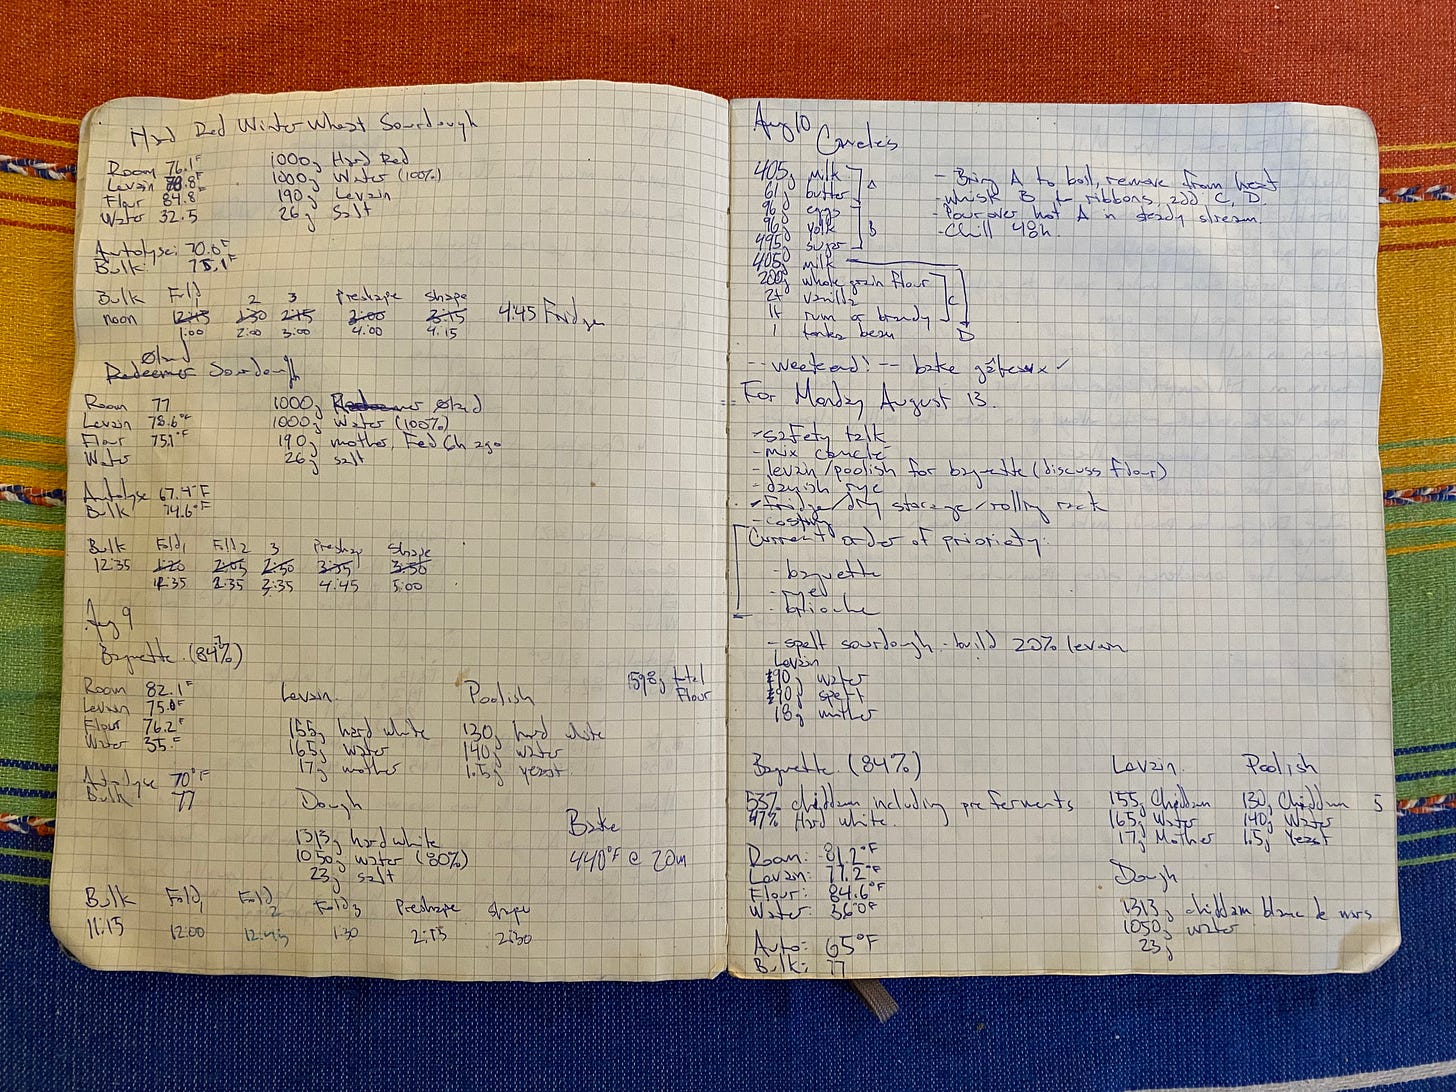 Hard Red Winter Wheat Sourdough
Room 76.1°F 1000g Hard Red
Levain 78.8F 1000g Water (100%)
Flour 84.8F 190g Levain
Water 32.5 26g Salt
Autolyse: 70.6°F
Bulk: 75.1°F
Bulk Fold 1 2 3 Preshape Shape
noon 12:45 1:30 2:15 3:00 3:15 4:45 Fridge
1:00 2:00 3:00 4:00 4:15
Øland
Redeemer Sourdough
Room 77 1000g Redeemer Øland
Levain 78.6°F 1000g Water (100%)
Flour 75.1°F 190g mother, Fed 6h ago
Water 26g salt
Autolyse 67.4°F
Bulk 74.6°F
Bulk Fold1 Fold2 3 Preshap Shape
12:35 1:20 2:05 2:50 3:35 3:50
1:35 2:35 3:35 4:45 5:00
Aug 9
Baguette (84%)
1598g total
Flour
Room 82.1°F Levain Poolish
Levain 75.0F
Flour 76.2°F 155g hard white 130g hard white
Water 35°F 165g water 140g water
17g mother 1.5g yeast
Autolyse 70°F
Bulk 77
Dough
1313g hard white Bake
1050g water (80%) 440°F @ 20m
23g salt
Bulk Fold1 Fold2 Fold3 Preshape Shape
11:15 12:00 12:45 1:30 2:15 2:30
Aug 10
Caneles
405g milk
61g butter A
96g eggs
96g yolk B
495g sugar
405g milk
200g whole grain flour
2t vanilla C
1t rum or brandy
1 tonka bean D
- Bring A to boil, remove from heat
- whisk B to ribbons, add C, D.
- Pour over hot A in steady stream.
- Chill 48h.
-- weekend! -- bake gâteaux ✓
For Monday August 13.
- safety talk
- mix canele
- levain/poolish for baguette (discuss flour)
- danish rye
- Fridge/dry storage/rolling rack
- costing
Current order of prioriety:
- baguette
- rye
- brioche
- spelt sourdough - build 20% levain
Levain
190g water
190g spelt
18g mother
Baguette (84%) Levain Poolish
53% chiddam including preferments 155g Chiddam 130g Chiddam 5
47% Hard white. 165g Water 140g Water
17g Mother 1.5g Yeast
Room: 81.2°F
Levain: 77.2°F Dough
Flour: 84.6°F
Water: 36.0°F 1313g chiddam blanc de mars
1050g water
Auto: 65°F 23g
Bulk: 77